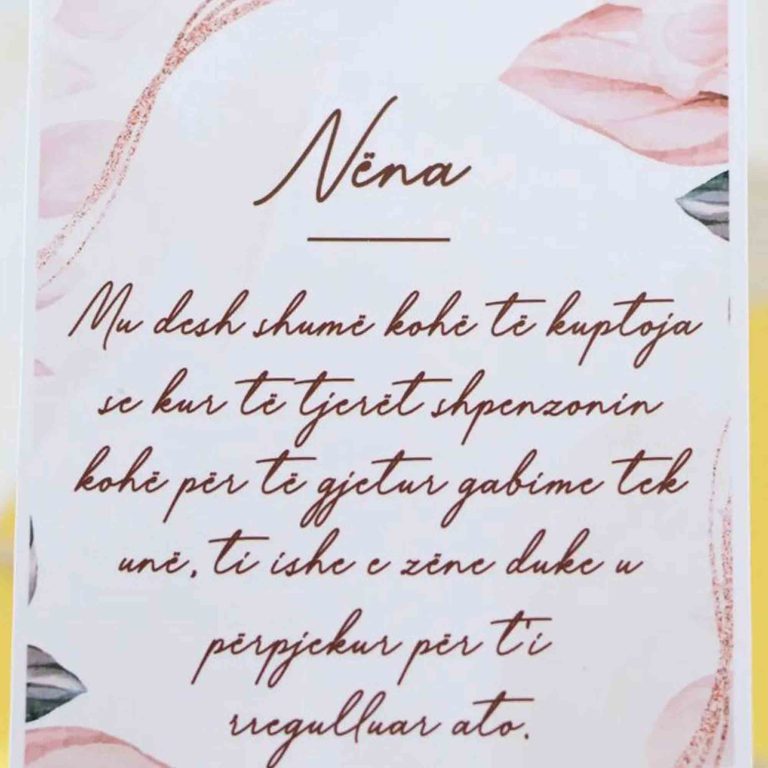 Nëna
Mu desh shumë kohë të kuptoja
se kur të tjerët shpenzonin
kohë për të gjetur gabime tek
unë, ti ishe e zëne duke u
përpjekur për t'i
rregulluar ato.